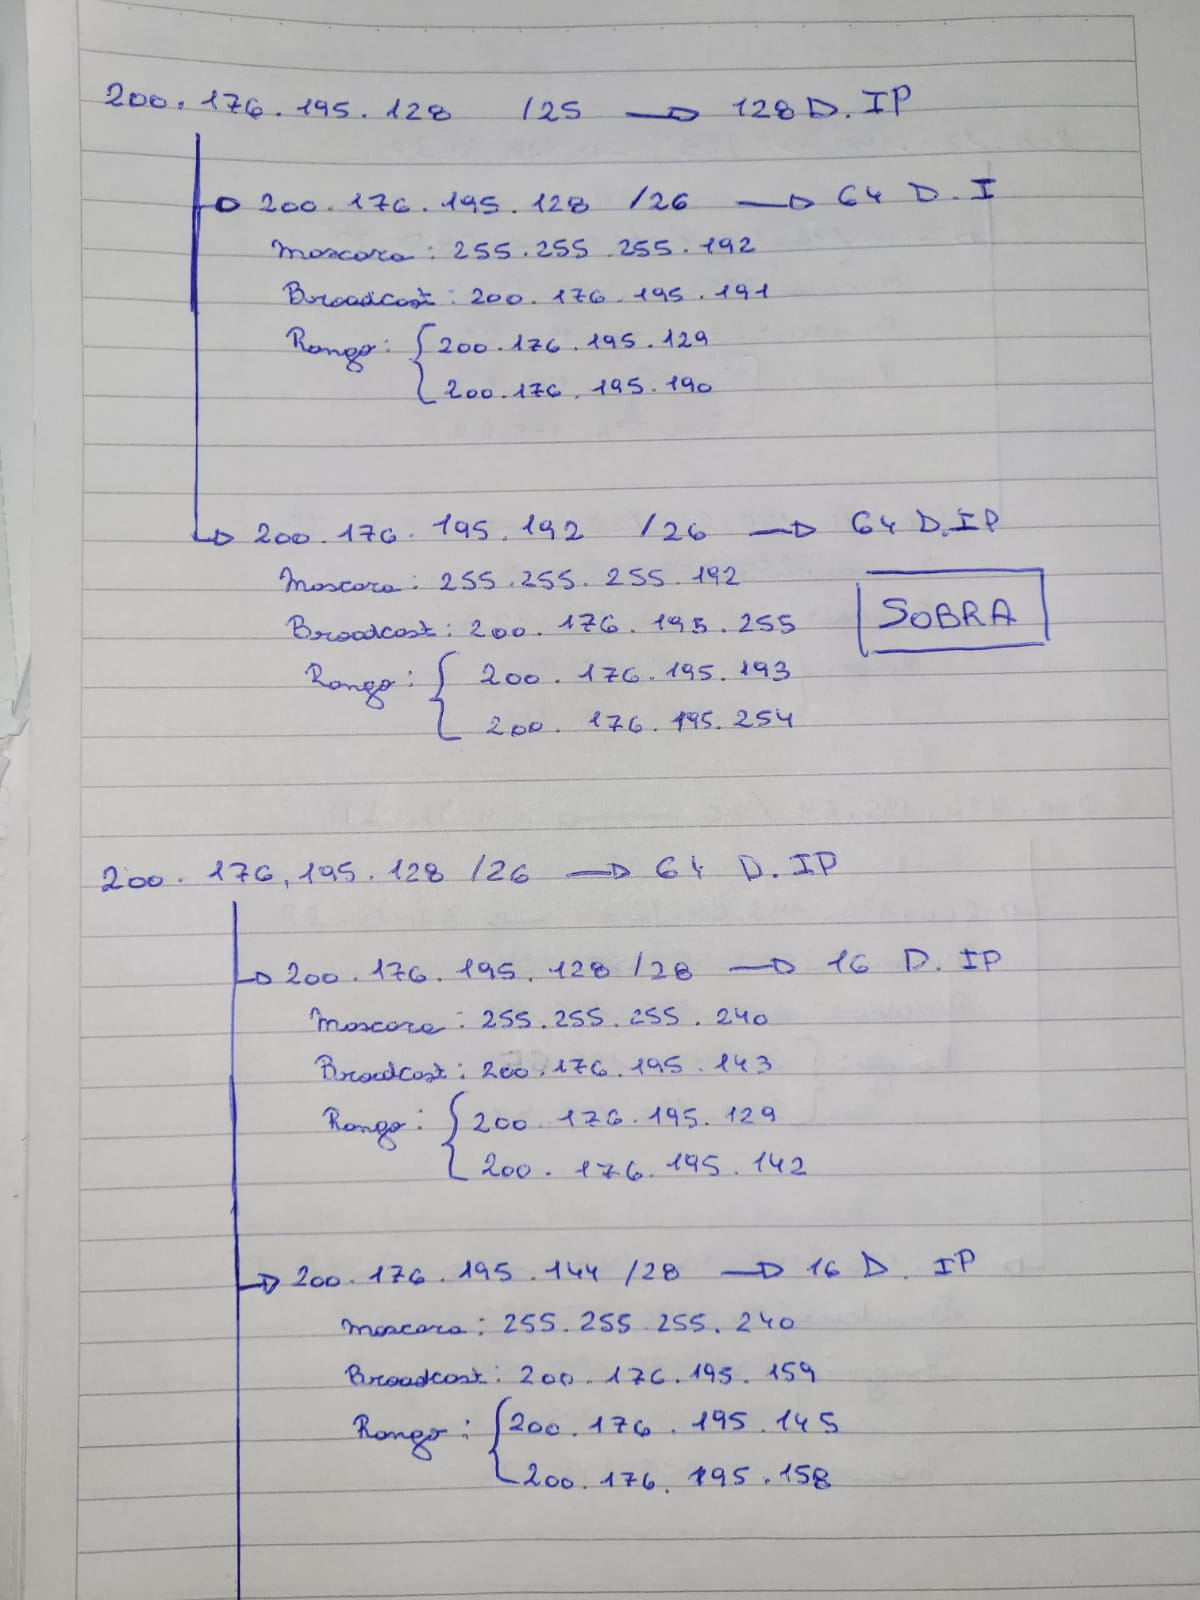 200.176.195.128 /25 → 128 D.IP
→ 200.176.195.128 /26 → 64 D.I
Mascara: 255.255.255.192
Broadcast: 200.176.195.191
Rango: { 200.176.195.129
200.176.195.190
→ 200.176.195.192 /26 → 64 D.IP
Mascara: 255.255.255.192
Broadcast: 200.176.195.255
SOBRA
Rango: { 200.176.195.193
200.176.195.254
200.176.195.128 /26 → 64 D.IP
→ 200.176.195.128 /28 → 16 D.IP
Mascara: 255.255.255.240
Broadcast: 200.176.195.143
Rango: { 200.176.195.129
200.176.195.142
→ 200.176.195.144 /28 → 16 D.IP
Mascara: 255.255.255.240
Broadcast: 200.176.195.159
Rango: { 200.176.195.145
200.176.195.158